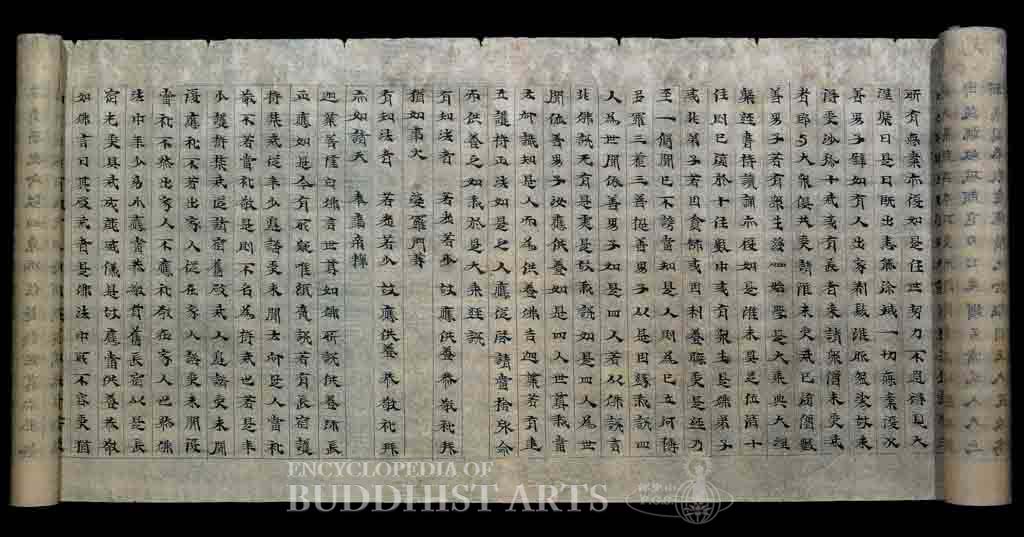 所有無業亦復如是住世勢力不過得見大
涅槃日是日既出悉能除滅一切無業復次
善男子譬如有人出家剃髮雖服袈裟故未
得受沙彌十戒或有長者來請眾僧未受戒
者即与大眾俱共受請雖未受戒已墮僧數
善男子若有眾生發心始學是大乘典大涅
槃經書持讀誦亦復如是雖未具足位階十
住則已墮於十住數中或有眾生是佛弟子
或非弟子若因貪怖或因利養聽受是經乃
至一偈聞已不謗當知是人則為已近阿耨
多羅三藐三菩提善男子以是因緣我說四
人為世間依善男子如是四人若以佛說言
非佛說无有是處是故我說如是四人為世
間依善男子汝應供養如是四人世尊我當
云何識知是人而為供養佛告迦葉若有建
立護持正法如是之人應從啓請當捨身命
而供養之如我於是大乘經說
有知法者 若老若少 故應供養 恭敬礼拜
猶如事火 婆羅門等
有知法者 若老若少 故應供養 恭敬礼拜
亦如諸天 奉事帝釋
迦葉菩薩白佛言世尊如佛所說供養師長
正應如是今有所疑唯願廣說若有長宿護
持禁戒從年少邊諮受未聞云何是人當礼
敬不若當礼敬是則不名為持戒也若是年
少護持禁戒從諸宿舊破戒人邊諮受未聞
復應礼不若出家人從在家人諮受未聞復
當礼不然出家人不應礼敬在家人也然佛
法中年少幼小應當恭敬耆舊長宿以是長
宿先受具戒成就威儀是故應當供養恭敬
如佛言曰其破戒者是佛法中所不容受猶
ENCYCLOPEDIA OF
BUDDHIST ARTS